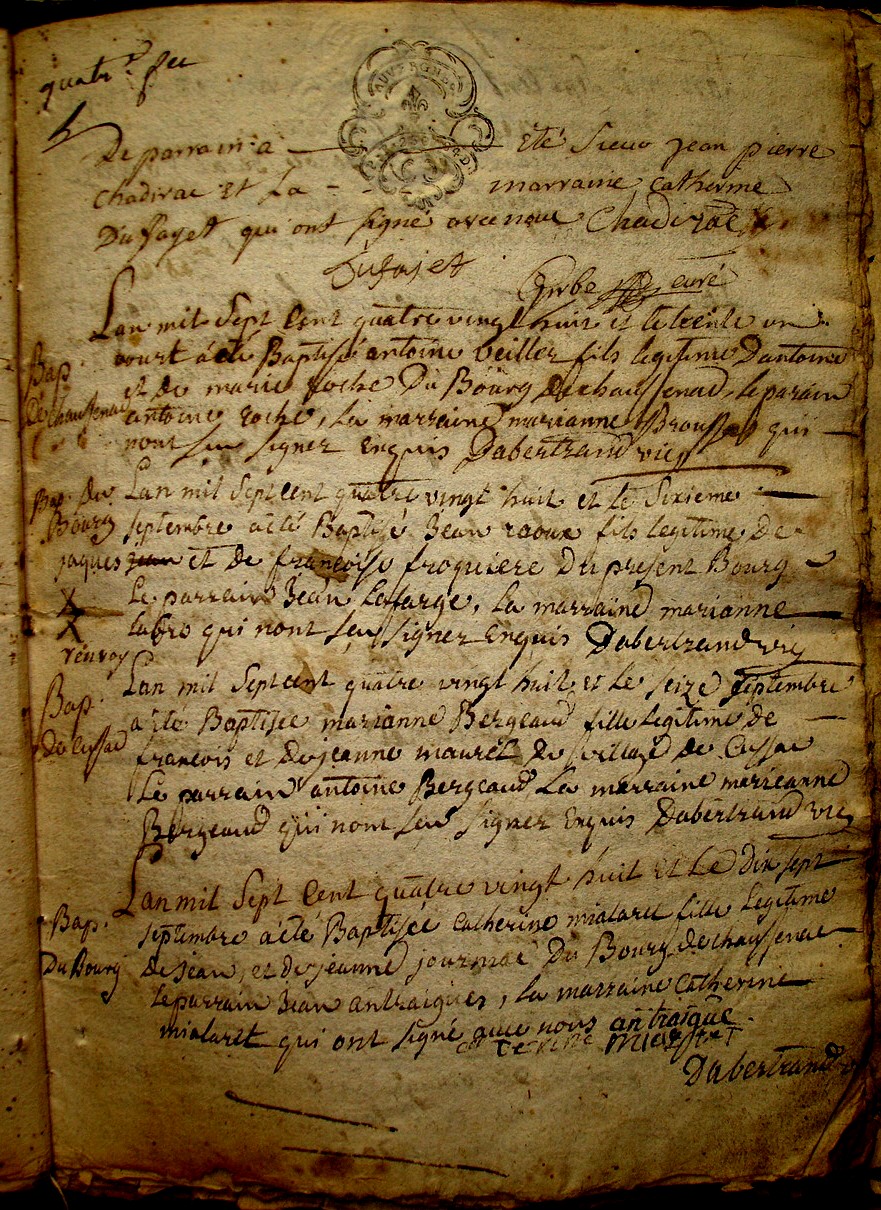 quatr.e feu
AUVERGNE
De parrain a été Sieur jean pierre
Chadirac et La marraine Catherine
Dufayet qui ont signé avec nous Chadirac
Dufayet
Girbe curé
Lan mil Sept Cent quatre vingt huit et le trente un
Bap. aoust a été Baptisé antoine veiller fils legitime Dantoine
De chaussenac et de marie roche Du Bourg De chaussenac, le parain
antoine roche, La marraine marianne Broussas qui
nont Seu Signer Enquis Dabertrand vic
Bap. du Lan mil Sept cent quatre vingt huit et le Sixieme
Bourg septembre a été Baptisé Jean raoux fils legitime De
jaques jean et De françoise froquiere Du present Bourg
X Le parrain Jean Lafarge, La marraine marianne
X labro qui nont Seu Signer Enquis Dabertrand vic
renvoy
Lan mil Sept cent quatre vingt huit, et Le seize septembre
Bap. a été Baptisée marianne Bergeaud fille Legitime de
de Cussac francois et de jeanne mauret du village de Cussac
Le parrain antoine Bergeaud La marraine marieanne
Bergeaud qui nont Seu Signer Enquis Dabertrand vic
Lan mil Sept Cent quatre vingt huit et Le Dix sept
Bap. septembre a été Baptisée Catherine mialaret fille Legitime
Du Bourg de jean, et de jeanne journiac Du Bourg de chaussenac
le parrain Jean antraigues, La marraine Catherine
mialaret qui ont signé avec nous antraigue
Caterine mialaret
Dabertrand